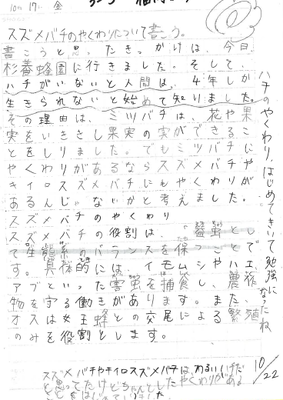 10月17日 金
スズメバチのやくわりについて書こう。
書こうと思ったきっかけは、今日
杉養蜂園に行きました。そして、
ハチがいないと人間は、4年しか
生きられないと始めて知りました。
その理由は、ミツバチは、花や果
実をいききし果実の実ができるこ
とをしりました。でもミツバチに
やくわりがあるならスズメバチや
キイロスズメバチにもやくわりが
あるんじゃないかと考えました。
スズメバチのやくわり
スズメバチの役割は、益虫とし
て生態系のバランスを保つことで
す。具体的には、イモムシやハエ、
アブといった害虫を捕食し、農作
物を守る働きがあります。また、
オスは女王蜂との交尾による繁殖
のみを役割とします。
スズメバチやキイロスズメバチは、わるいけだ
と思ってたけどちゃんとしたやくわりがある
ハチのやくわり、はじめてきいて勉強になったね
10/22